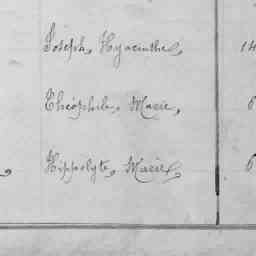 Joseph, Hyacinthe, 14
Théophile, Marie, 6
Hippolyte, Marie, 6